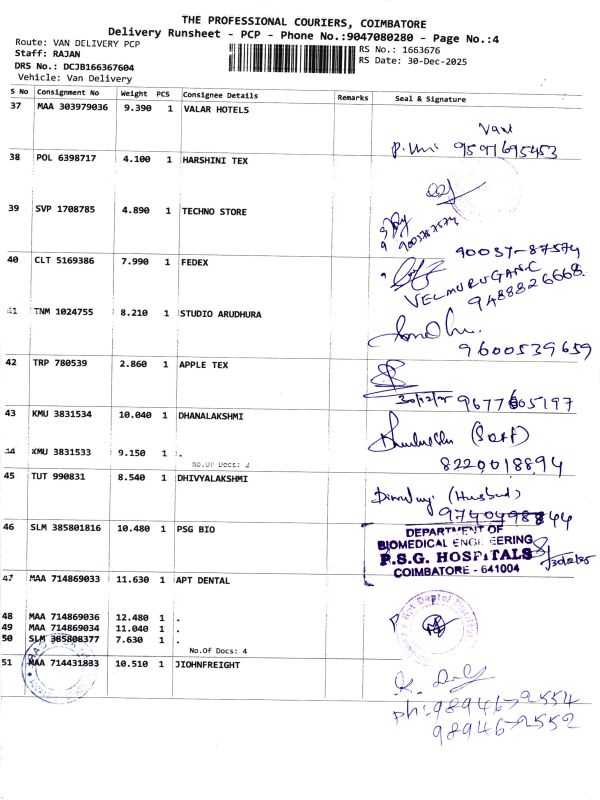 THE PROFESSIONAL COURIERS, COIMBATORE
Delivery Runsheet - PCP - Phone No.:9047080280 - Page No.:4
Route: VAN DELIVERY PCP
Staff: RAJAN
DRS No.: DCJB166367604
Vehicle: Van Delivery
RS No.: 1663676
RS Date: 30-Dec-2025
S No Consignment No Weight PCS Consignee Details Remarks Seal & Signature
37 MAA 303979036 9.390 1 VALAR HOTELS
9597695453
38 POL 6398717 4.100 1 HARSHINI TEX
39 SVP 1708785 4.890 1 TECHNO STORE
9003787574
40 CLT 5169386 7.990 1 FEDEX
90037-87574
VELMURUGAN.C
9488826668
41 TNM 1024755 8.210 1 STUDIO ARUDHURA
9600539659
42 TRP 780539 2.860 1 APPLE TEX
30/12/25 9677605197
43 KMU 3831534 10.040 1 DHANALAKSHMI
(Staff)
44 KMU 3831533 9.150 1 .
No.Of Docs: 2
8220018894
45 TUT 990831 8.540 1 DHIVYALAKSHMI
(Husband)
9740498844
46 SLM 385801816 10.480 1 PSG BIO
DEPARTMENT OF
BIOMEDICAL ENGINEERING
P.S.G. HOSPITALS
COIMBATORE - 641004
30/12/25
47 MAA 714869033 11.630 1 APT DENTAL
48 MAA 714869036 12.480 1 .
49 MAA 714869034 11.040 1 .
50 SLM 385808377 7.630 1 .
No.Of Docs: 4
51 MAA 714431833 10.510 1 JIOHNFREIGHT
ph:98946-72554
98946-72552